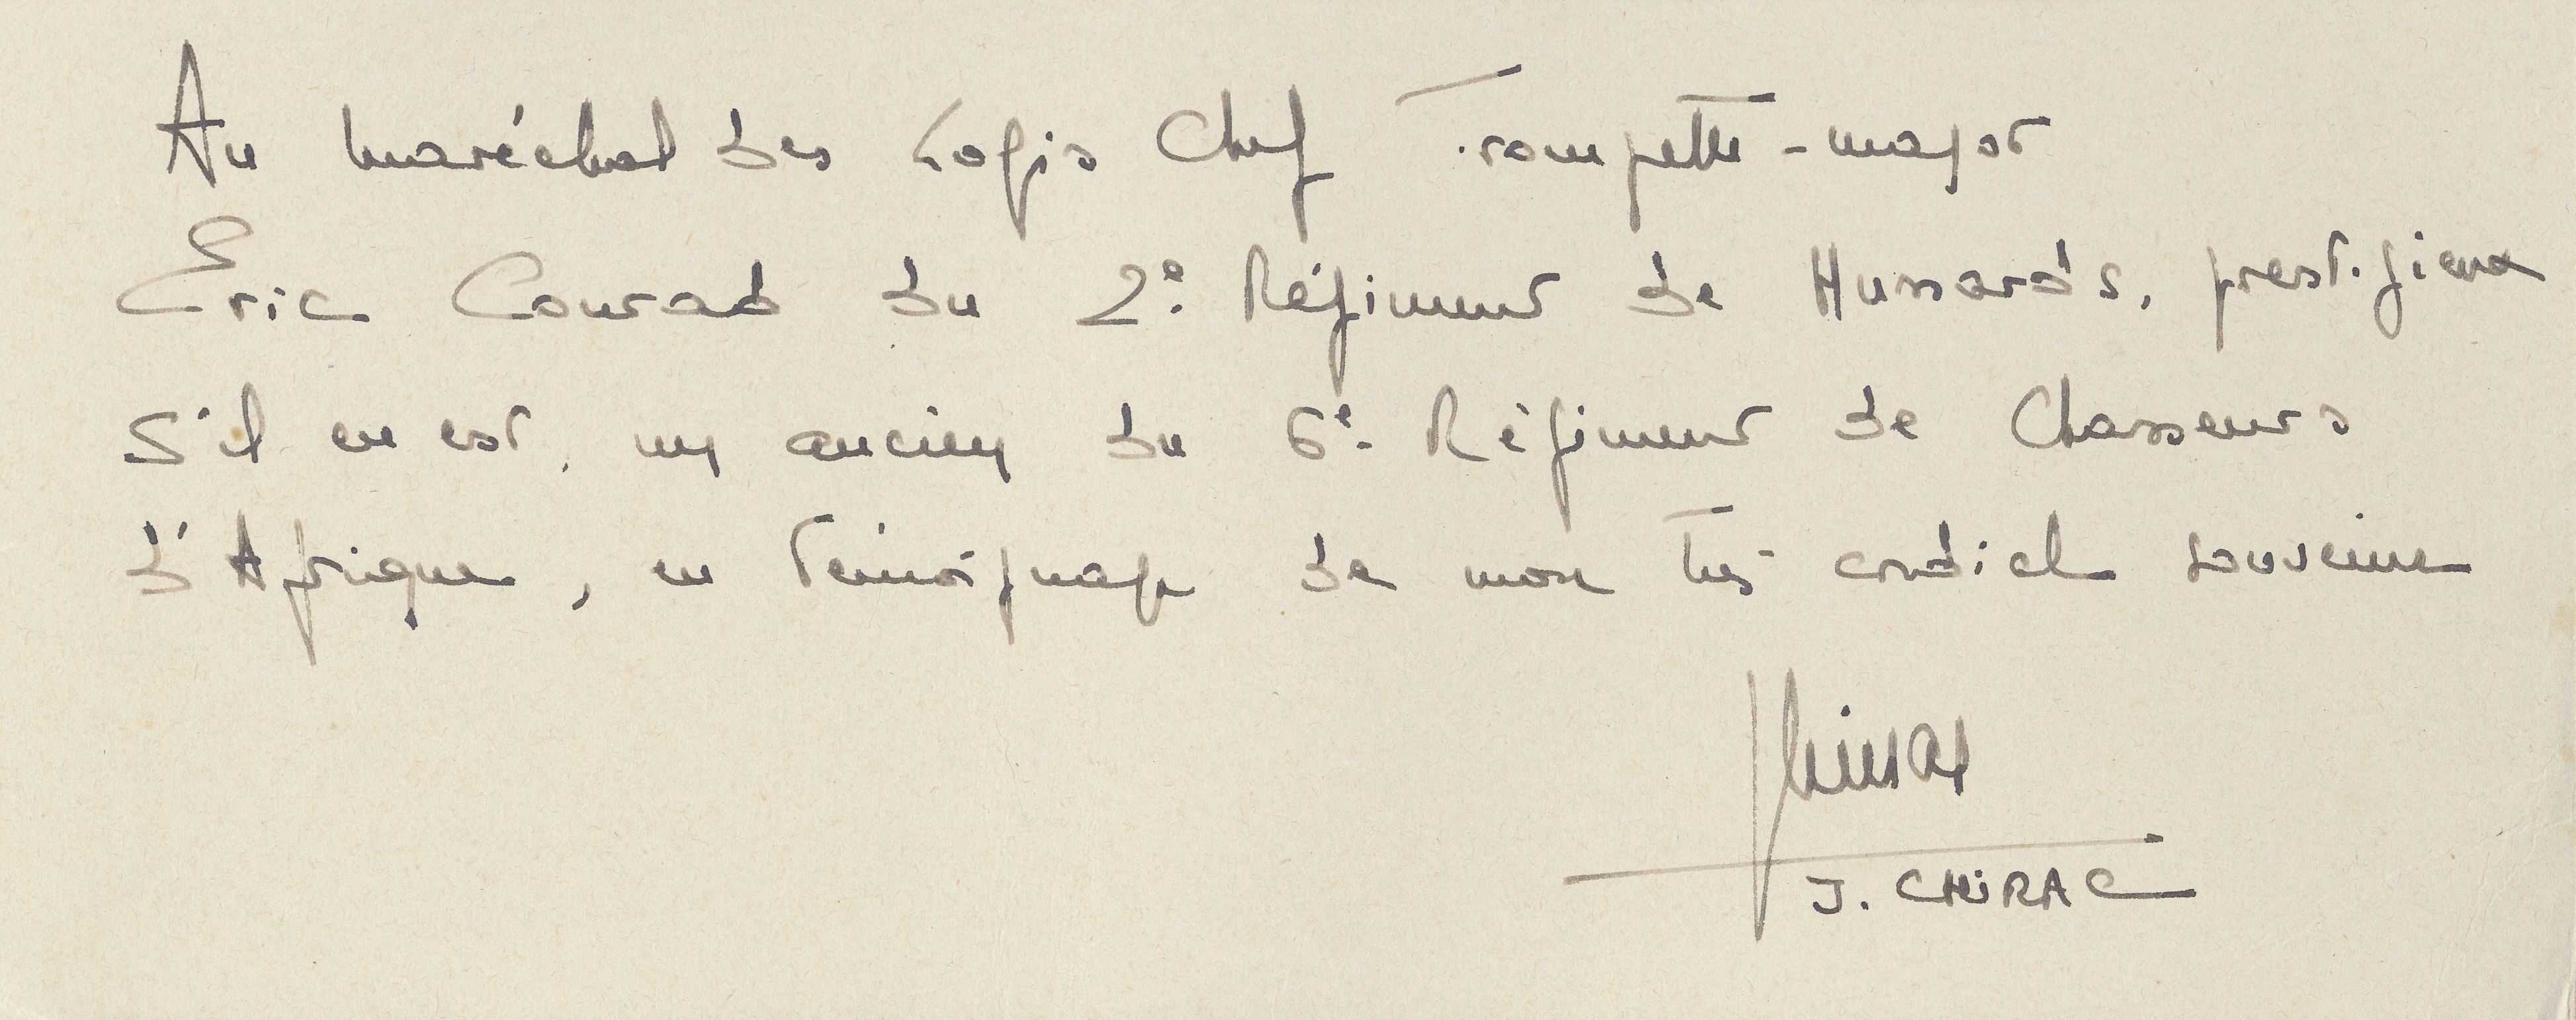 Au maréchal des Logis Chef Trompette-major
Eric Conrad du 2e Régiment de Hussards, prestigieux
s'il en est, un ancien du 6e Régiment de Chasseurs
d'Afrique, en témoignage de mon très cordial souvenir
J. CHIRAC